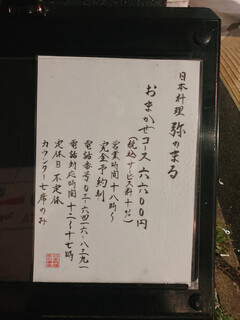 日本料理 弥のまる
おまかせコース 六六〇〇円
(税込 サービス料十%)
営業時間 十八時〜
完全予約制
電話番号 〇三-六四一六-八三九一
電話対応時間 十二〜十七時
定休日 不定休
カウンター七席のみ